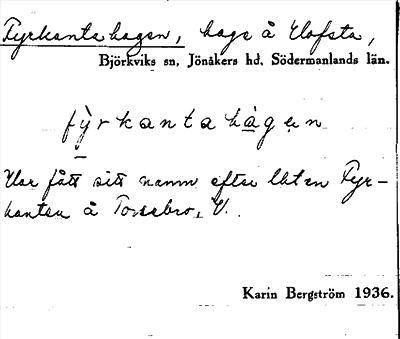 Fyrkantahagen, hage å Elofsta,
Björkviks sn, Jönåkers hd, Södermanlands län.
fỳrkantahàgen
Har fått sitt namn efter lht en Fyr-
kanten å Torsebro, V.
Karin Bergström 1936.